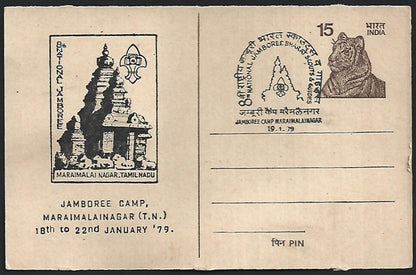 8th NATIONAL JAMBOREE
MARAIMALAI NAGAR, TAMILNADU
JAMBOREE CAMP,
MARAIMALAINAGAR (T.N.)
18th to 22nd JANUARY '79.
8वीं राष्ट्रीय जम्बूरी भारत स्काउट्स व गाइड्स
8th NATIONAL JAMBOREE BHARAT SCOUTS & GUIDES
जम्बूरी कैंप मरैमलैनगर
JAMBOREE CAMP MARAIMALAINAGAR
19.1.79
15 भारत
INDIA
पिन PIN